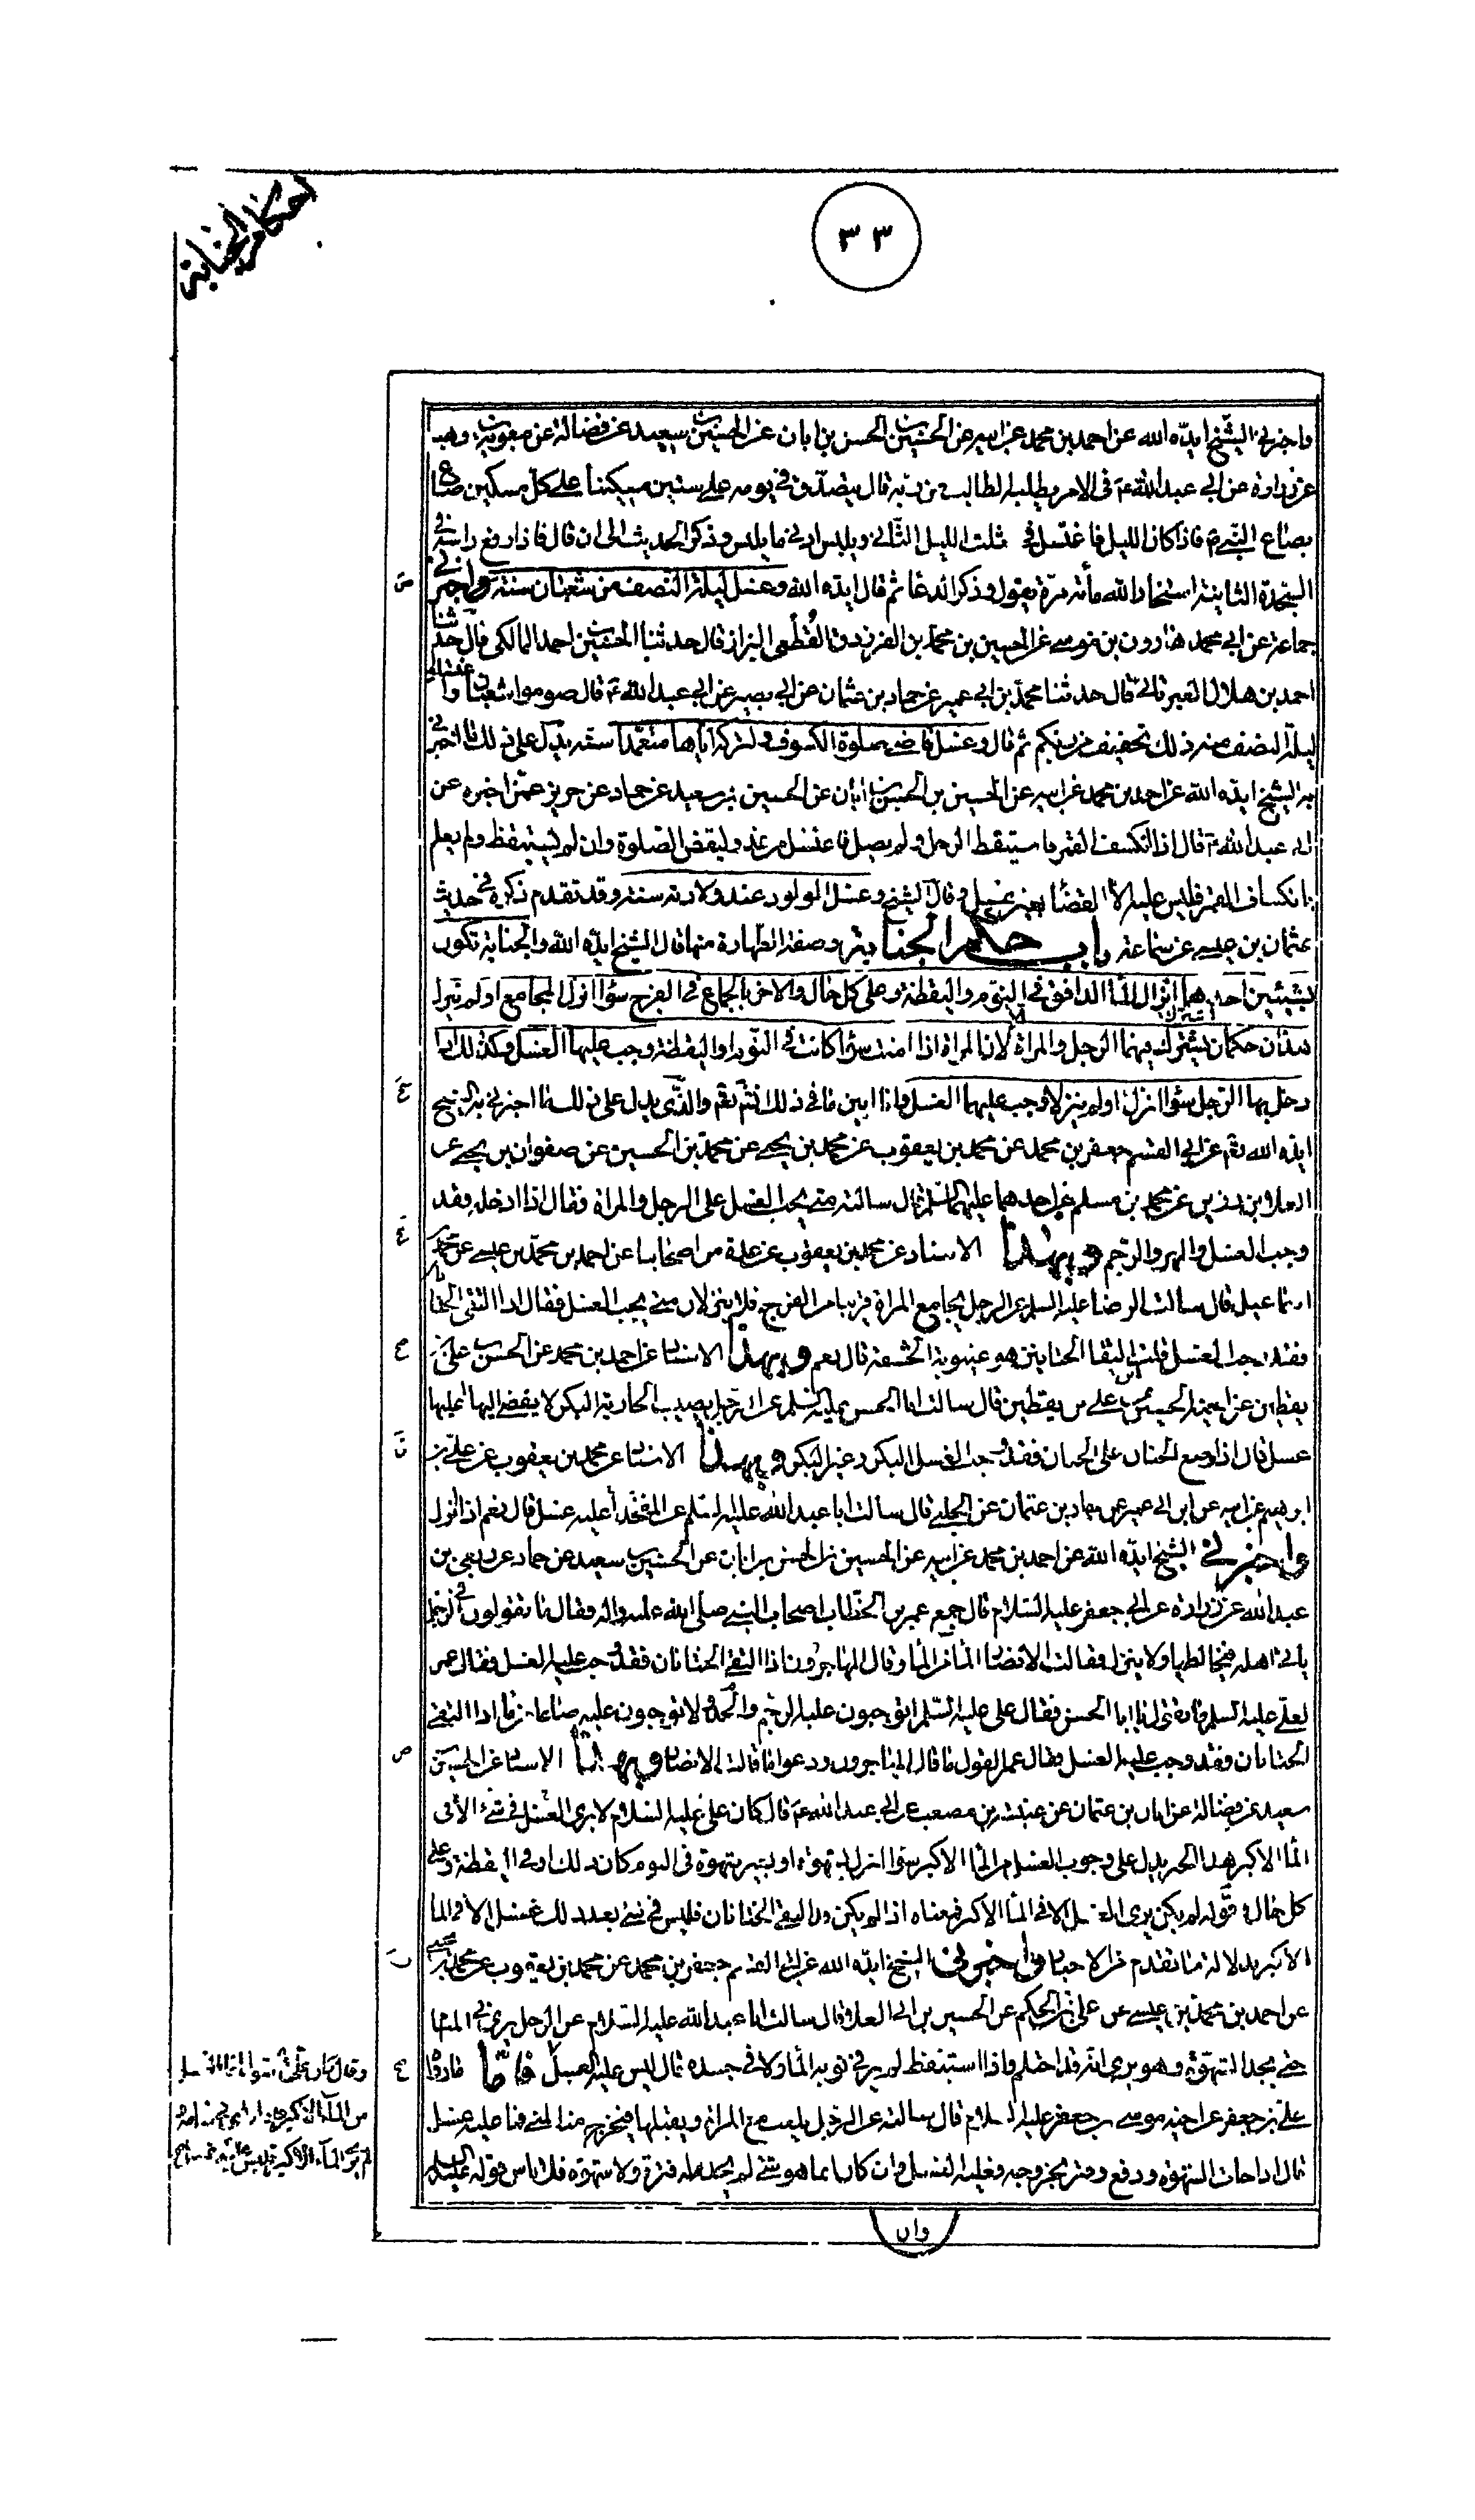 احكام الجنابة
٣٣
واخبرني الشيخ ايده الله عن احمد بن محمد عن ابيه عن الحسين بن الحسن بن ابان عن الحسين بن سعيد عن فضالة عن معوية بن وهب
عن زرارة عن ابي عبد الله ع في الامر يطلبه الطالب من ربه قال يتصدق في يومه على ستين مسكينا على كل مسكين صاع
بصاع النبي ص فاذا كان الليل فاغتسل في ثلث الليل الثاني ويلبس ادنى ما يلبس وذكر الحديث الى ان قال فاذا رفع راسه في
السجدة الثانية استخار الله مأته مرة يقول وذكر الدعا ثم قال ايده الله وغسل ليلة النصف من شعبان سنة واخبرني
جماعة عن ابي محمد هارون بن موسى عن الحسين بن محمد بن الفرزدق القطعى البزاز قال حدثنا الحسين بن احمد المالكي قال حدثنا
احمد بن هلال العبرتائي قال حدثنا محمد بن ابي عمير عن حماد بن عثمان عن ابي بصير عن ابي عبد الله ع قال صوموا شعبان واغتسلوا
ليلة النصف منه ذلك تخفيف من ربكم ثم قال وغسل قاضي صلوة الكسوف لتركه اياها متعمدا سنة يدل على ذلك ما اخبرني
به الشيخ ايده الله عن احمد بن محمد عن ابيه عن الحسين بن الحسن بن ابان عن الحسين بن سعيد عن حماد عن حريز عمن اخبره عن
ابي عبد الله ع قال اذا انكسف القمر فاستيقظ الرجل ولم يصل فاغتسل من غد وليقض الصلوة وان لم يستيقظ ولم يعلم
بانكساف القمر فليس عليه الا القضا بغير غسل وقال الشيخ وغسل المولود عند ولادته سنة وقد تقدم ذكره في حديث
عثمان بن عيسى عن سماعة باب حكم الجنابة وصفة الطهارة منها قال الشيخ ايده الله والجنابة تكون
بشيئين احدهما انزال الماء الدافق في النوم واليقظة وعلى كل حال والاخر بالجماع في الفرج سواء انزل المجامع او لم ينزل
هذان حكمان يشترك فيهما الرجل والمراة لان المراة اذا امنت سواء كانت في النوم او اليقظة وجب عليها الغسل وكذلك اذا
دخل بها الرجل سواء انزل او لم ينزلا وجب عليهما الغسل واذا ابين ما في ذلك تم بقم والذي يدل على ذلك ما اخبرني به الشيخ
ايده الله تعم عن ابي القسم جعفر بن محمد عن محمد بن يعقوب عن محمد بن يحيى عن محمد بن الحسين عن صفوان بن يحيى عن
العلا بن رزين عن محمد بن مسلم عن احدهما عليهما السلم قال سالته متى يجب الغسل على الرجل والمراة فقال اذا ادخله فقد
وجب الغسل والمهر والرجم وبهذا الاسناد عن محمد بن يعقوب عن عدة من اصحابنا عن احمد بن محمد بن عيسى عن محمد بن
اسماعيل قال سالت الرضا عليه السلم عن الرجل يجامع المراة قريبا من الفرج فلا ينزلان متى يجب الغسل فقال اذا التقى الختانان
فقد وجب الغسل قلت التقا الختانين هو غيبوبة الحشفة قال نعم وبهذا الاسناد عن احمد بن محمد عن الحسن بن علي بن
يقطين عن اخيه الحسين عن علي بن يقطين قال سالت ابا الحسن عليه السلم عن الرجل يصيب الجارية البكر لا يفضي اليها عليها
غسل قال اذا وضع الختان على الختان فقد وجب الغسل البكر وغير البكر وبهذا الاسناد عن محمد بن يعقوب عن علي بن
ابرهيم عن ابيه عن ابن ابي عمير عن حماد بن عثمان عن الحلبي قال سالت ابا عبد الله عليه السلم عن المفخذ أعليه غسل قال نعم اذا انزل
واخبرني الشيخ ايده الله عن احمد بن محمد عن ابيه عن الحسين بن الحسن بن ابان عن الحسين بن سعيد عن حماد عن ربعي بن
عبد الله عن زرارة عن ابي جعفر عليه السلام قال جمع عمر بن الخطاب اصحاب النبي صلى الله عليه واله فقال ما تقولون في الرجل
ياتي اهله فيخالطها ولا ينزل فقالت الانصار الماء من الماء وقال المهاجرون اذا التقى الختانان فقد وجب عليه الغسل فقال عمر
لعلي عليه السلم ما تقول يا ابا الحسن فقال علي عليه السلم اتوجبون عليه الرجم والحد ولا توجبون عليه صاعا من ماء اذا التقى
الختانان فقد وجب عليه الغسل فقال عمر القول ما قال المهاجرون ودعوا ما قالت الانصار وبهذا الاسناد عن الحسين بن
سعيد عن فضالة عن ابان بن عثمان عن عنبسة بن مصعب عن ابي عبد الله ع قال كان علي عليه السلام لا يرى الغسل في شئ الا في
الماء الاكبر هذا الخبر يدل على وجوب الغسل من الماء الاكبر سواء انزل بشهوة او بغير شهوة في النوم كان ذلك او في اليقظة وعلى
كل حال وقوله لم يكن يرى الغسل الا في الماء الاكبر فمعناه اذا لم يكن قد التقى الختانان فليس في شئ بعد ذلك غسل الا في الماء
الاكبر بدلالة ما تقدم من الاخبار واخبرني الشيخ ايده الله عن ابي القسم جعفر بن محمد عن محمد بن يعقوب عن محمد بن يحيى
عن احمد بن محمد بن عيسى عن علي بن الحكم عن الحسين بن ابي العلا قال سالت ابا عبد الله عليه السلام عن الرجل يرى في المنام
حتى يجد الشهوة وهو يرى انه قد احتلم فاذا استيقظ لم ير في ثوبه الماء ولا في جسده قال ليس عليه الغسل فاما ما رواه
علي بن جعفر عن اخيه موسى بن جعفر عليه السلام قال سالته عن الرجل يلعب مع المراة ويقبلها فيخرج منه المني فما عليه غسل
قال اذا جاءت الشهوة ودفع وفتر بخروجه فعليه الغسل وان كان انما هو شئ لم يجد له فترة ولا شهوة فلا باس قوله عليه السلم
وقال كان علي يقول انما الغسل
من الماء الاكبر فاذا راى في منامه
لم ير الماء الاكبر فليس عليه غسل
وان